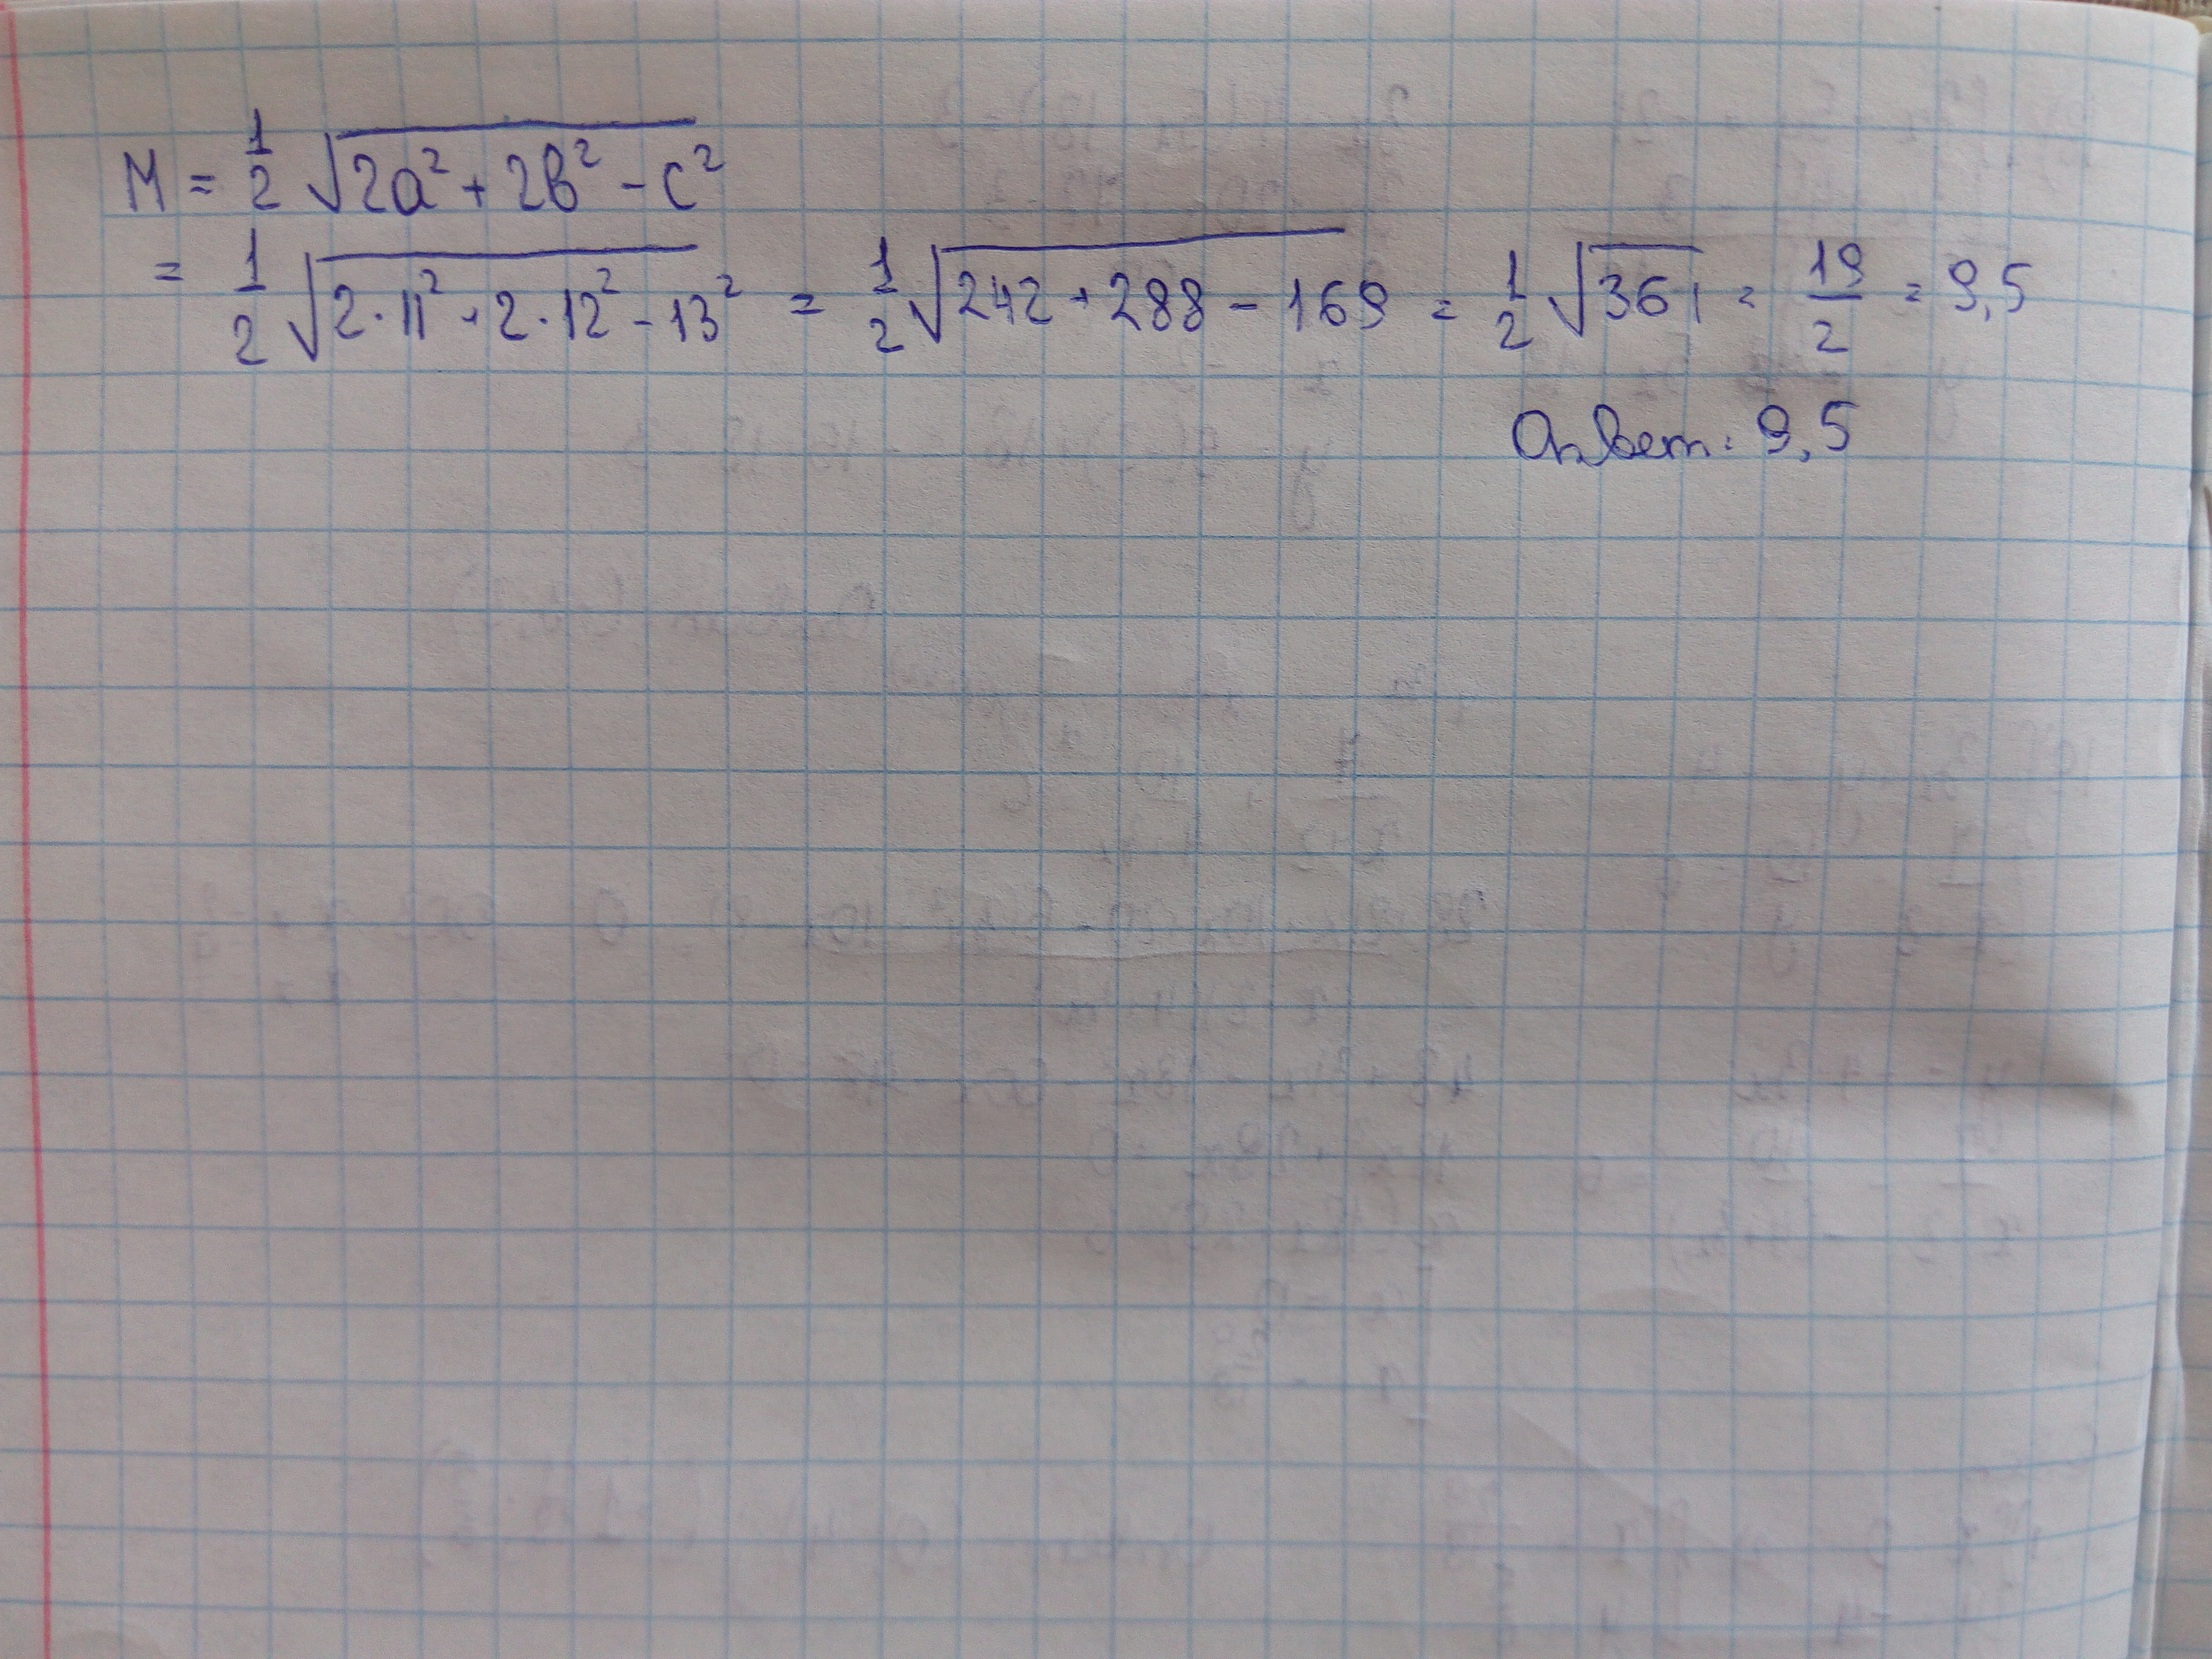 M = 1/2 √2a² + 2b² - c²
= 1/2 √2·11² + 2·12² - 13² = 1/2 √242 + 288 - 169 = 1/2 √361 = 19/2 = 9,5
Ответ: 9,5